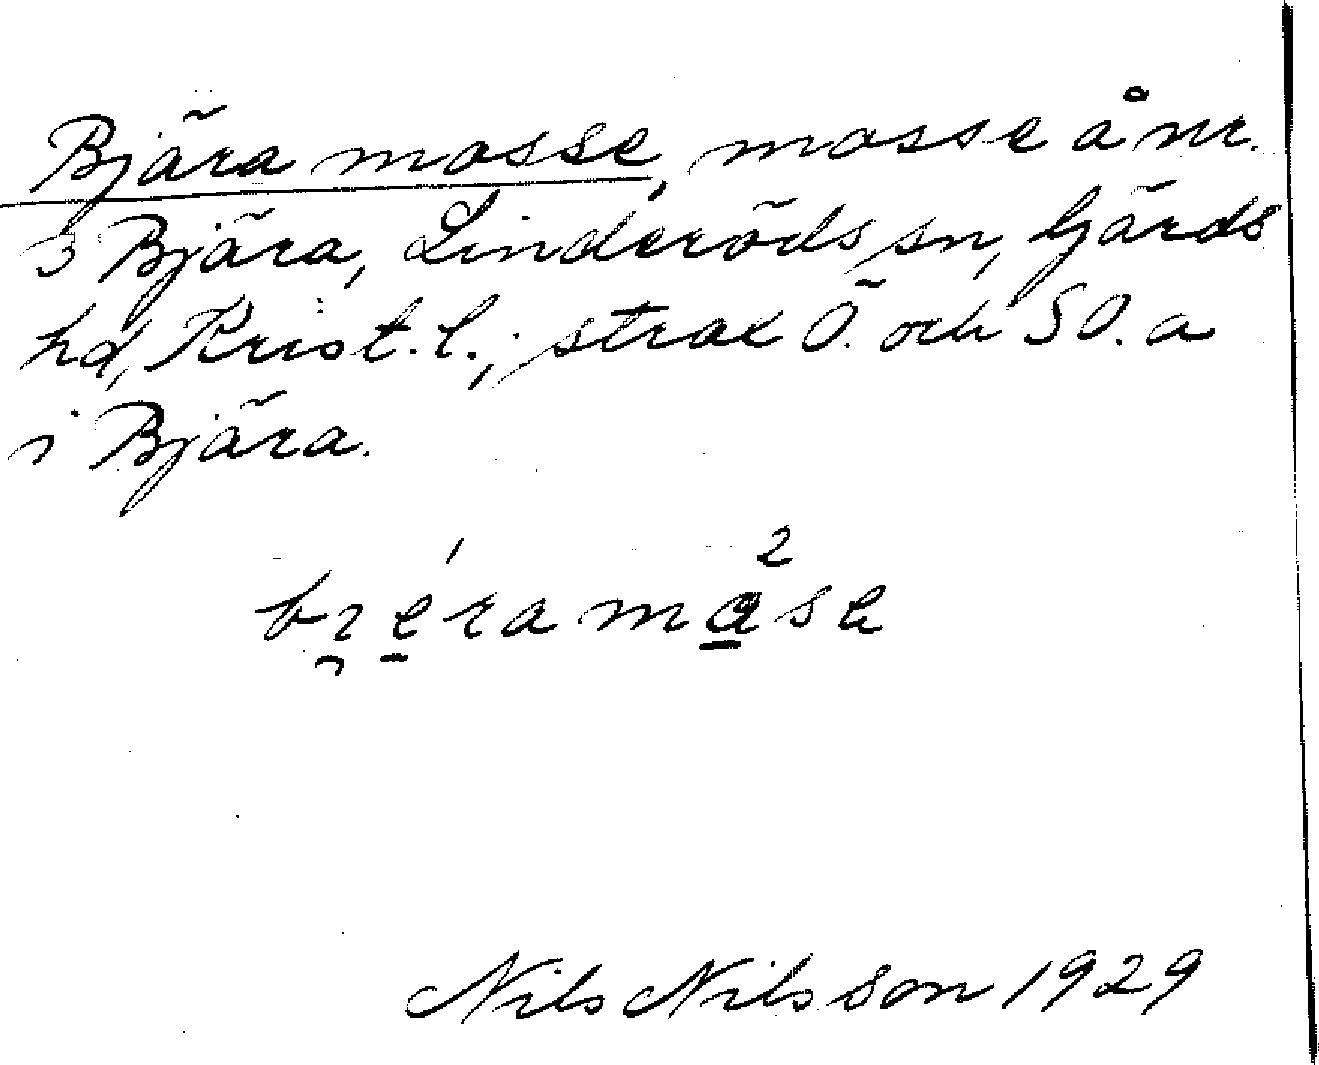 Bjära mosse, mosse å nr.
3 Bjära, Linderöds sn, Gärds
hd, Krist. l.; strax Ö. och SO. a
i Bjära.
bręra måsa
Nils Nilsson 1929